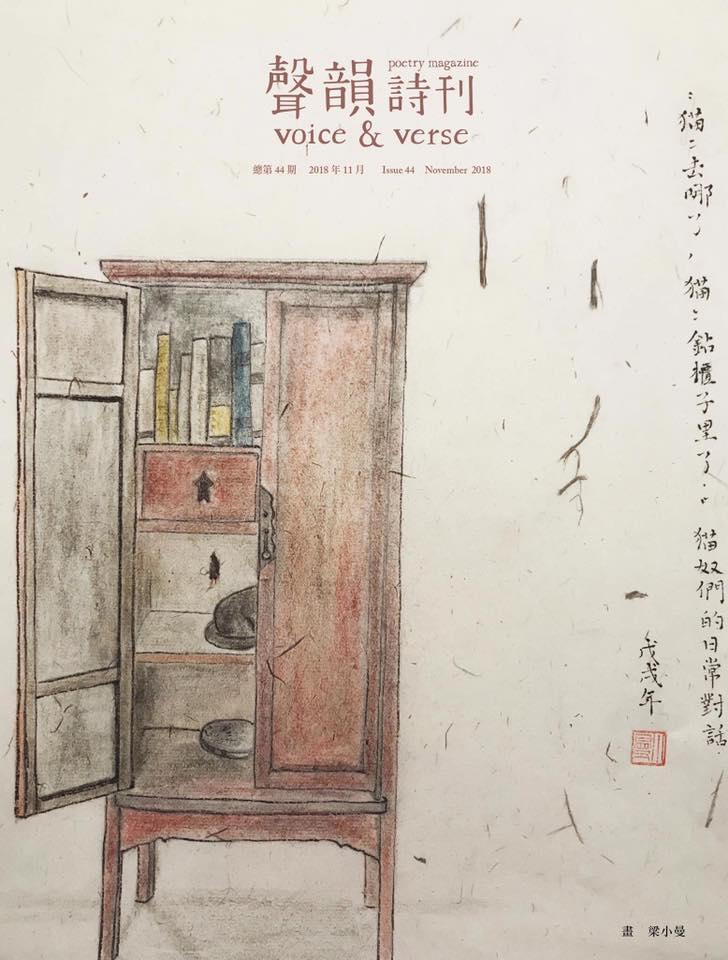 聲韻詩刊
poetry magazine
voice & verse
總第 44 期 2018 年 11 月 Issue 44 November 2018
“猫〻去哪了，猫〻鉆櫃子里了。”猫奴們的日常對話
戊戌年
畫 梁小曼